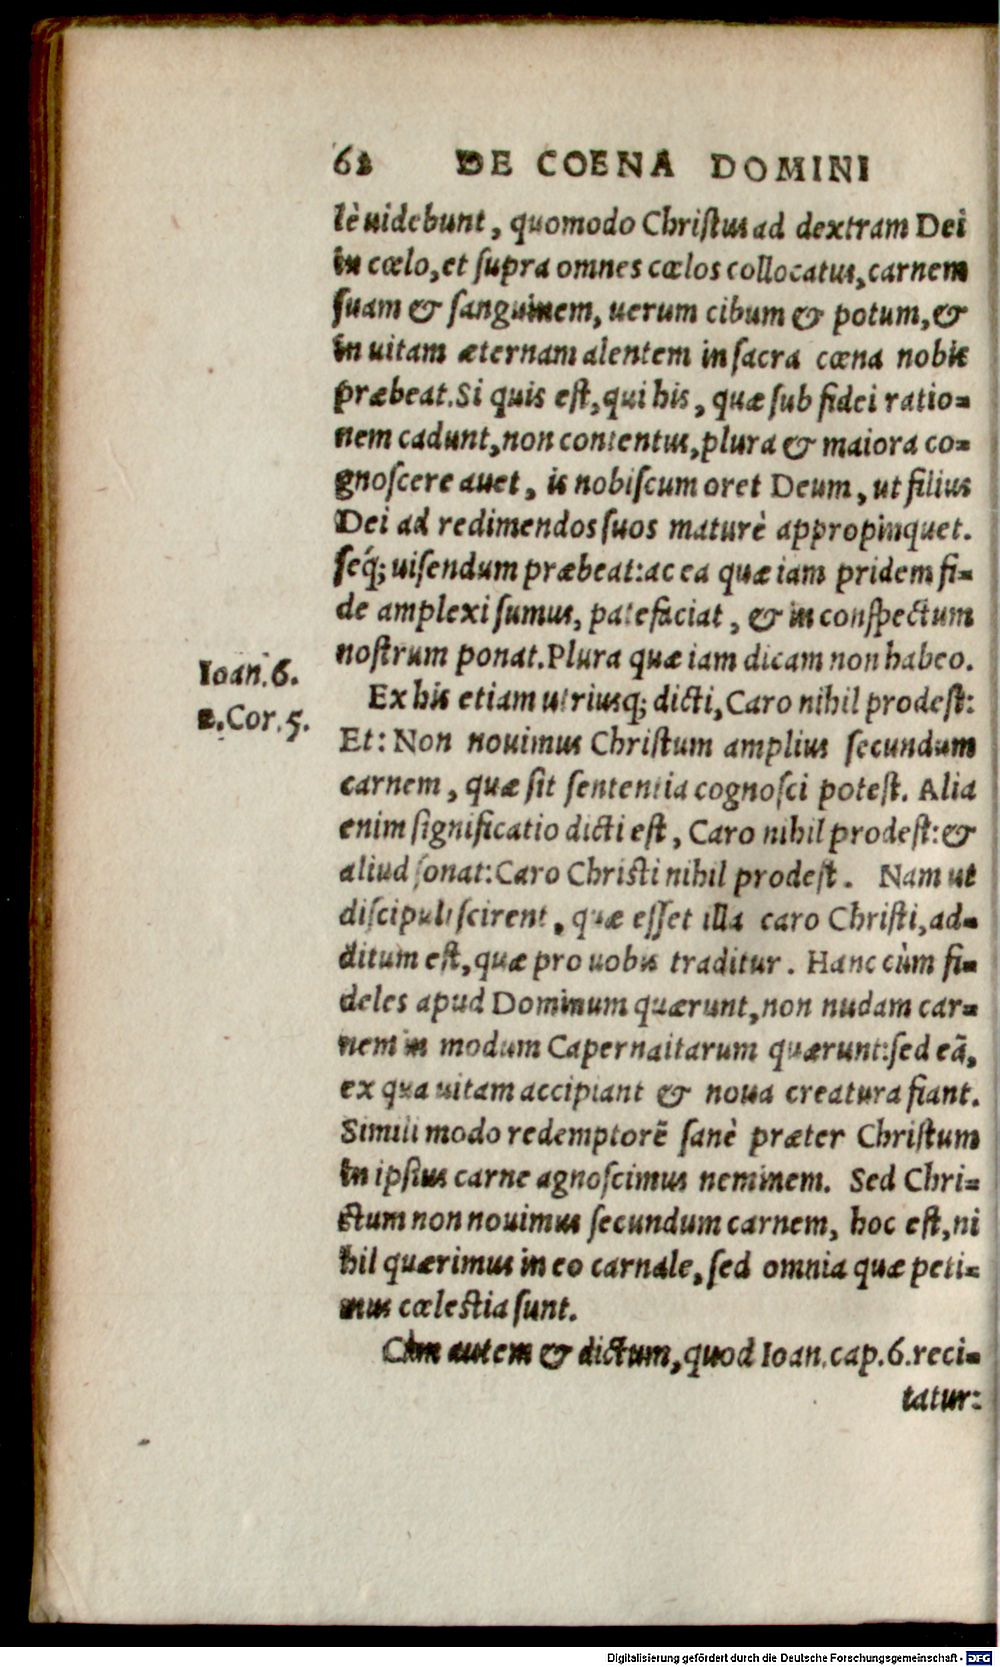 62 DE COENA DOMINI
lè uidebunt, quomodo Christus ad dextram Dei
in cœlo, et supra omnes cœlos collocatus, carnem
suam & sanguinem, uerum cibum & potum, &
in uitam æternam alentem in sacra cœna nobis
præbeat. Si quis est, qui his, quæ sub fidei ratio-
nem cadunt, non contentus, plura & maiora co-
gnoscere auet, is nobiscum oret Deum, ut filius
Dei ad redimendos suos maturè appropinquet.
seq́; uisendum præbeat: ac ea quæ iam pridem fi-
de amplexi sumus, patefaciat, & in conspectum
nostrum ponat. Plura quæ iam dicam non habeo.
Ioan. 6.
Ex his etiam utriusq; dicti, Caro nihil prodest:
2. Cor. 5.
Et: Non nouimus Christum amplius secundum
carnem, quæ sit sententia cognosci potest. Alia
enim significatio dicti est, Caro nihil prodest: &
aliud sonat: Caro Christi nihil prodest. Nam ut
discipuli scirent, quæ esset illa caro Christi, ad-
ditum est, quæ pro uobis traditur. Hanc cùm fi-
deles apud Dominum quærunt, non nudam car-
nem in modum Capernaitarum quærunt: sed eã,
ex qua uitam accipiant & noua creatura fiant.
Simili modo redemptorẽ sanè præter Christum
in ipsius carne agnoscimus neminem. Sed Chri-
stum non nouimus secundum carnem, hoc est, ni
hil quærimus in eo carnale, sed omnia quæ peti-
mus cœlestia sunt.
Cùm autem & dictum, quod Ioan. cap. 6. reci-
tatur:
Digitalisierung gefördert durch die Deutsche Forschungsgemeinschaft - DFG